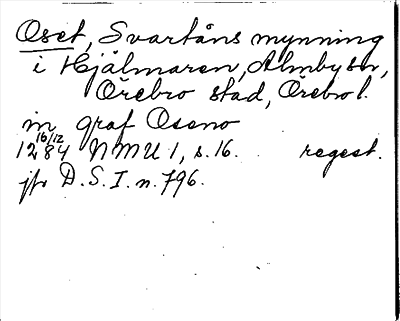 Oset, Svartåns mynning
i Hjälmaren, Almby sn,
Örebro stad, Örebro l.
in graf Oseno
16/12
1284 NMU 1, s. 16. regest.
jfr D.S. I. n. 796.